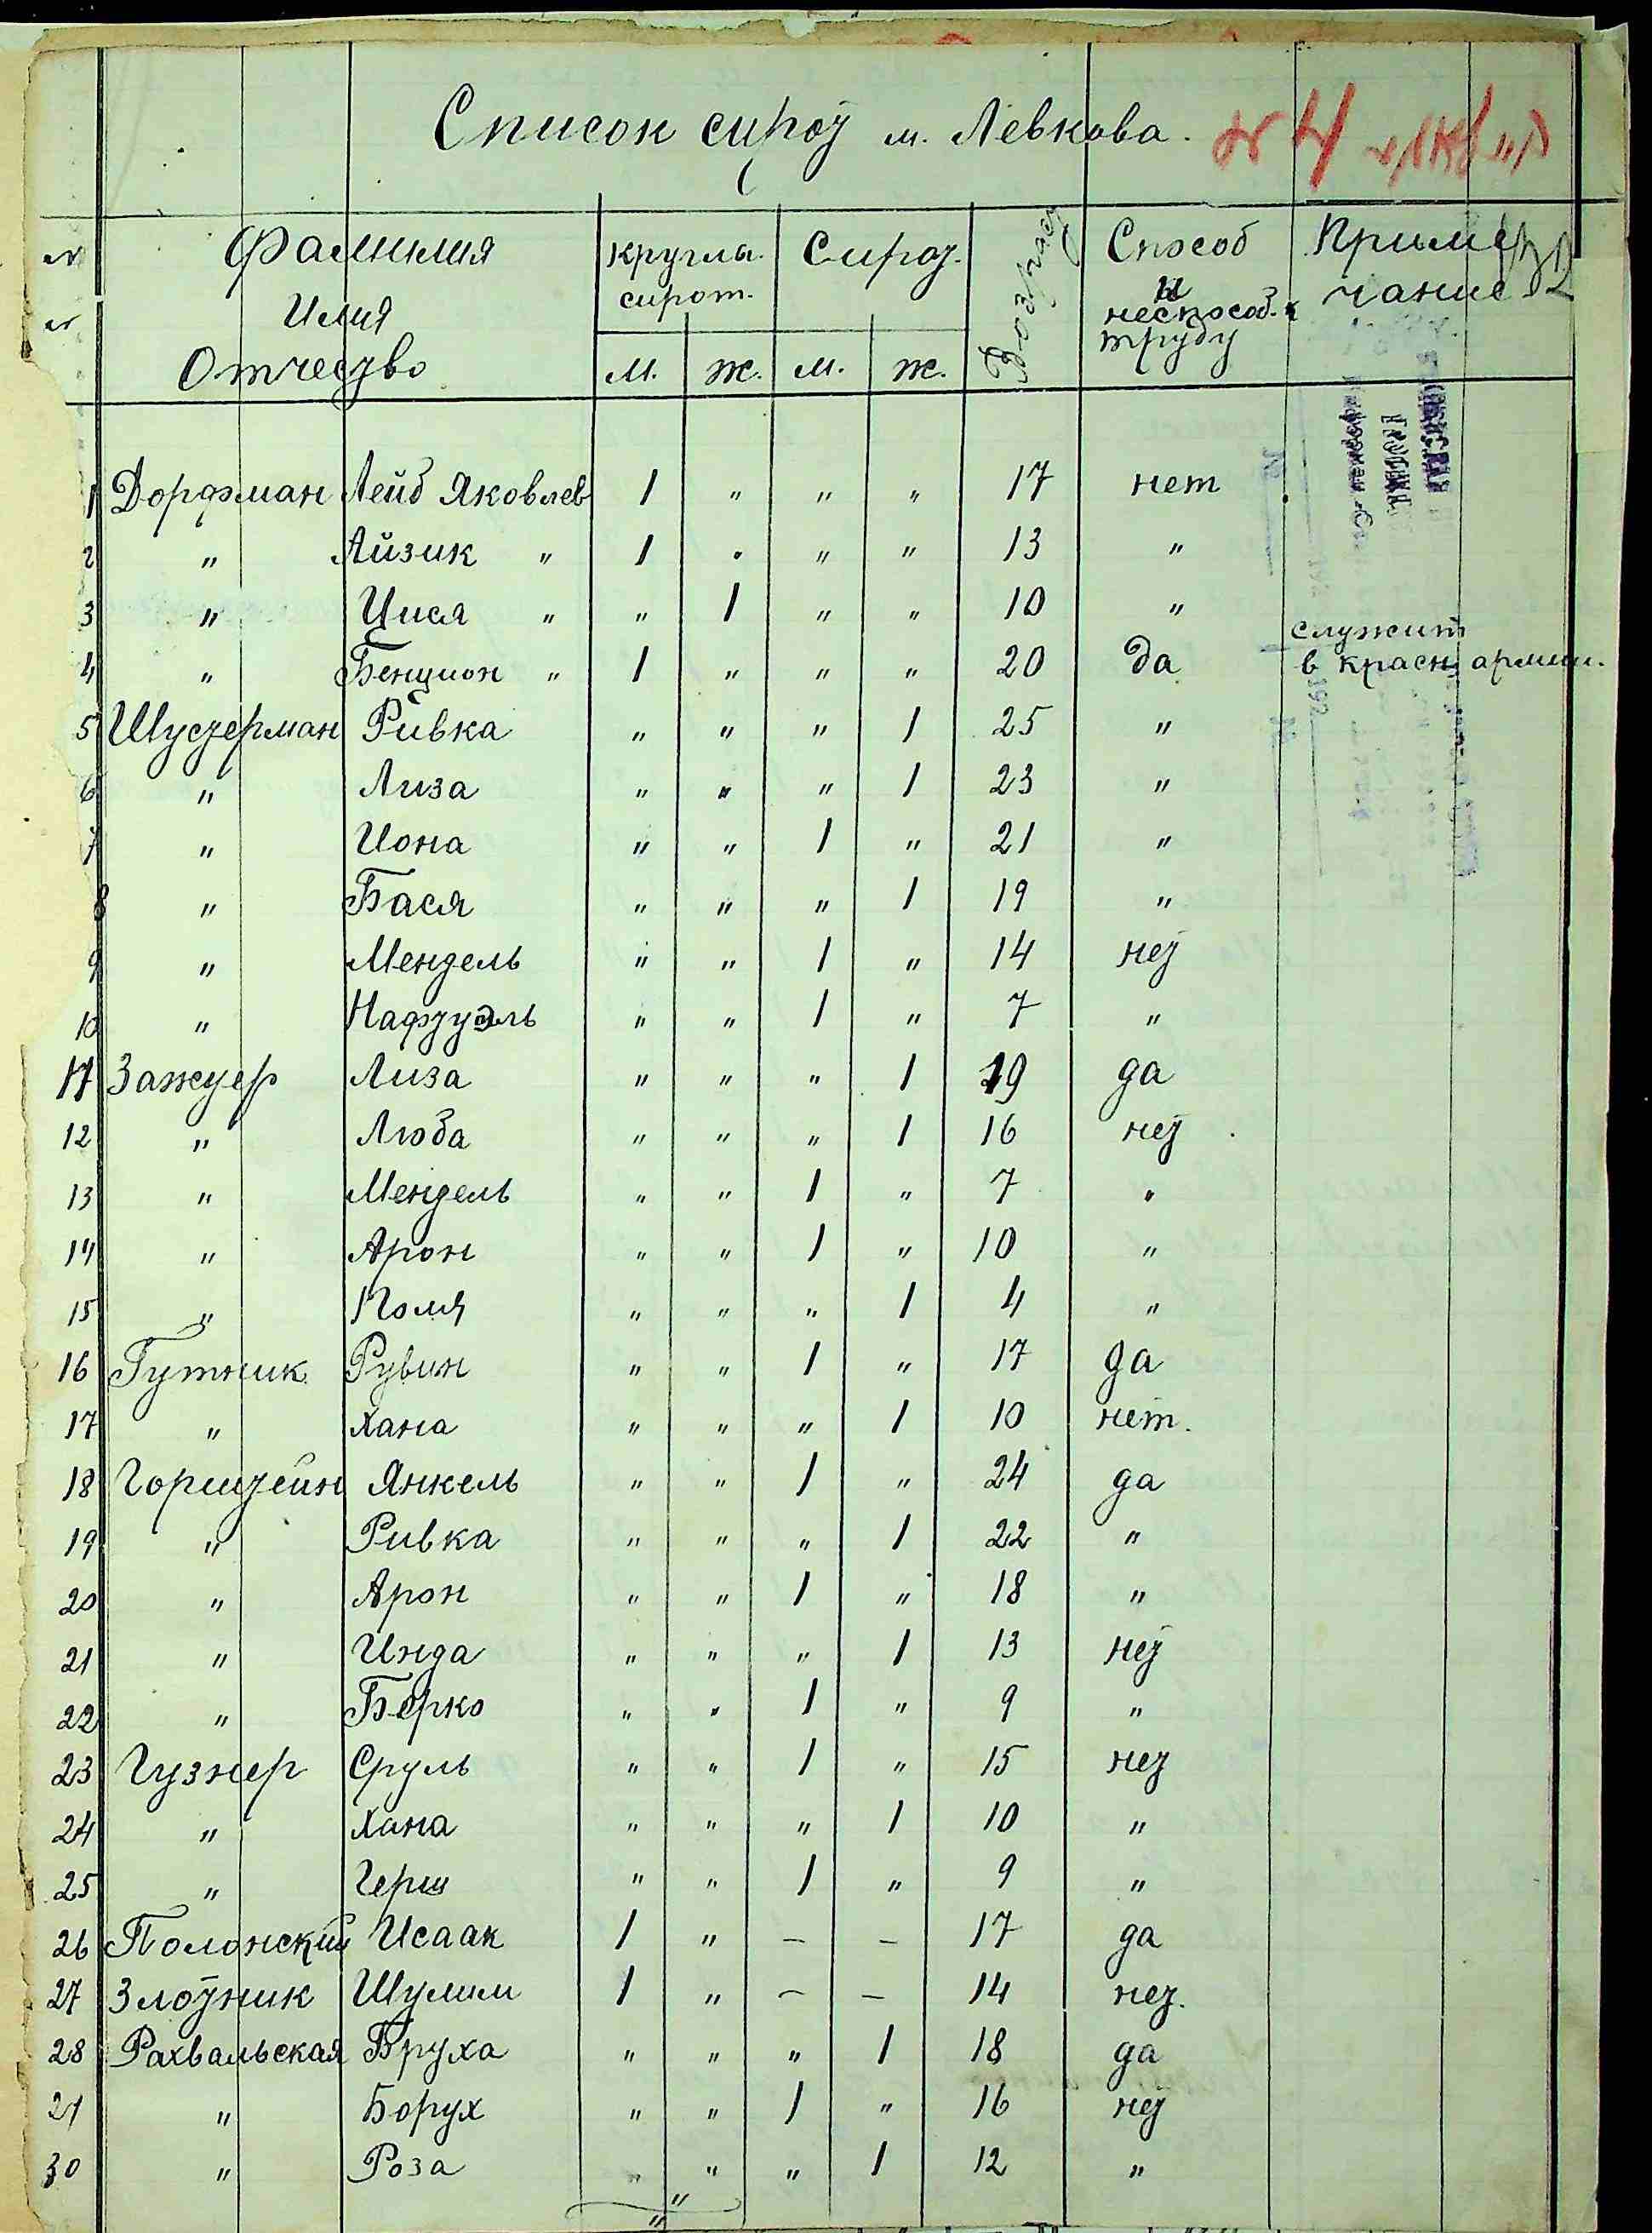 Список сирот м. Левкова.
№ 4
№ Фамилия Имя Отчество круглы. сирот. Сирот. Возраст Способ и неспособ. к труду Примечание
м. ж. м. ж.
1 Дорфман Лейб Яковлев 1 " " " 17 нет
2 " Айзик " 1 " " " 13 "
3 " Цися " " 1 " " 10 "
4 " Бенцион " 1 " " " 20 да служит в красн. армии.
5 Шустерман Ривка " " " 1 25 "
6 " Лиза " " " 1 23 "
7 " Иона " " 1 " 21 "
8 " Бася " " " 1 19 "
9 " Мендель " " 1 " 14 нет
10 " Нафтуэль " " 1 " 7 "
11 Зажуер Лиза " " " 1 19 да
12 " Люба " " " 1 16 нет
13 " Мендель " " 1 " 7 "
14 " Арон " " 1 " 10 "
15 " Поля " " " 1 4 "
16 Гутник Рувин " " 1 " 17 да
17 " Хана " " " 1 10 нет.
18 Горштейн Янкель " " 1 " 24 да
19 " Ривка " " " 1 22 "
20 " Арон " " 1 " 18 "
21 " Инда " " " 1 13 нет
22 " Берко " " 1 " 9 "
23 Гузнер Сруль " " 1 " 15 нет
24 " Хана " " " 1 10 "
25 " Герш " " 1 " 9 "
26 Полонский Исаак 1 " – – 17 да
27 Злотник Шулим 1 " – – 14 нет.
28 Рахвальская Бруха " " " 1 18 да
29 " Борух " " 1 " 16 нет
30 " Роза " " " 1 12 "